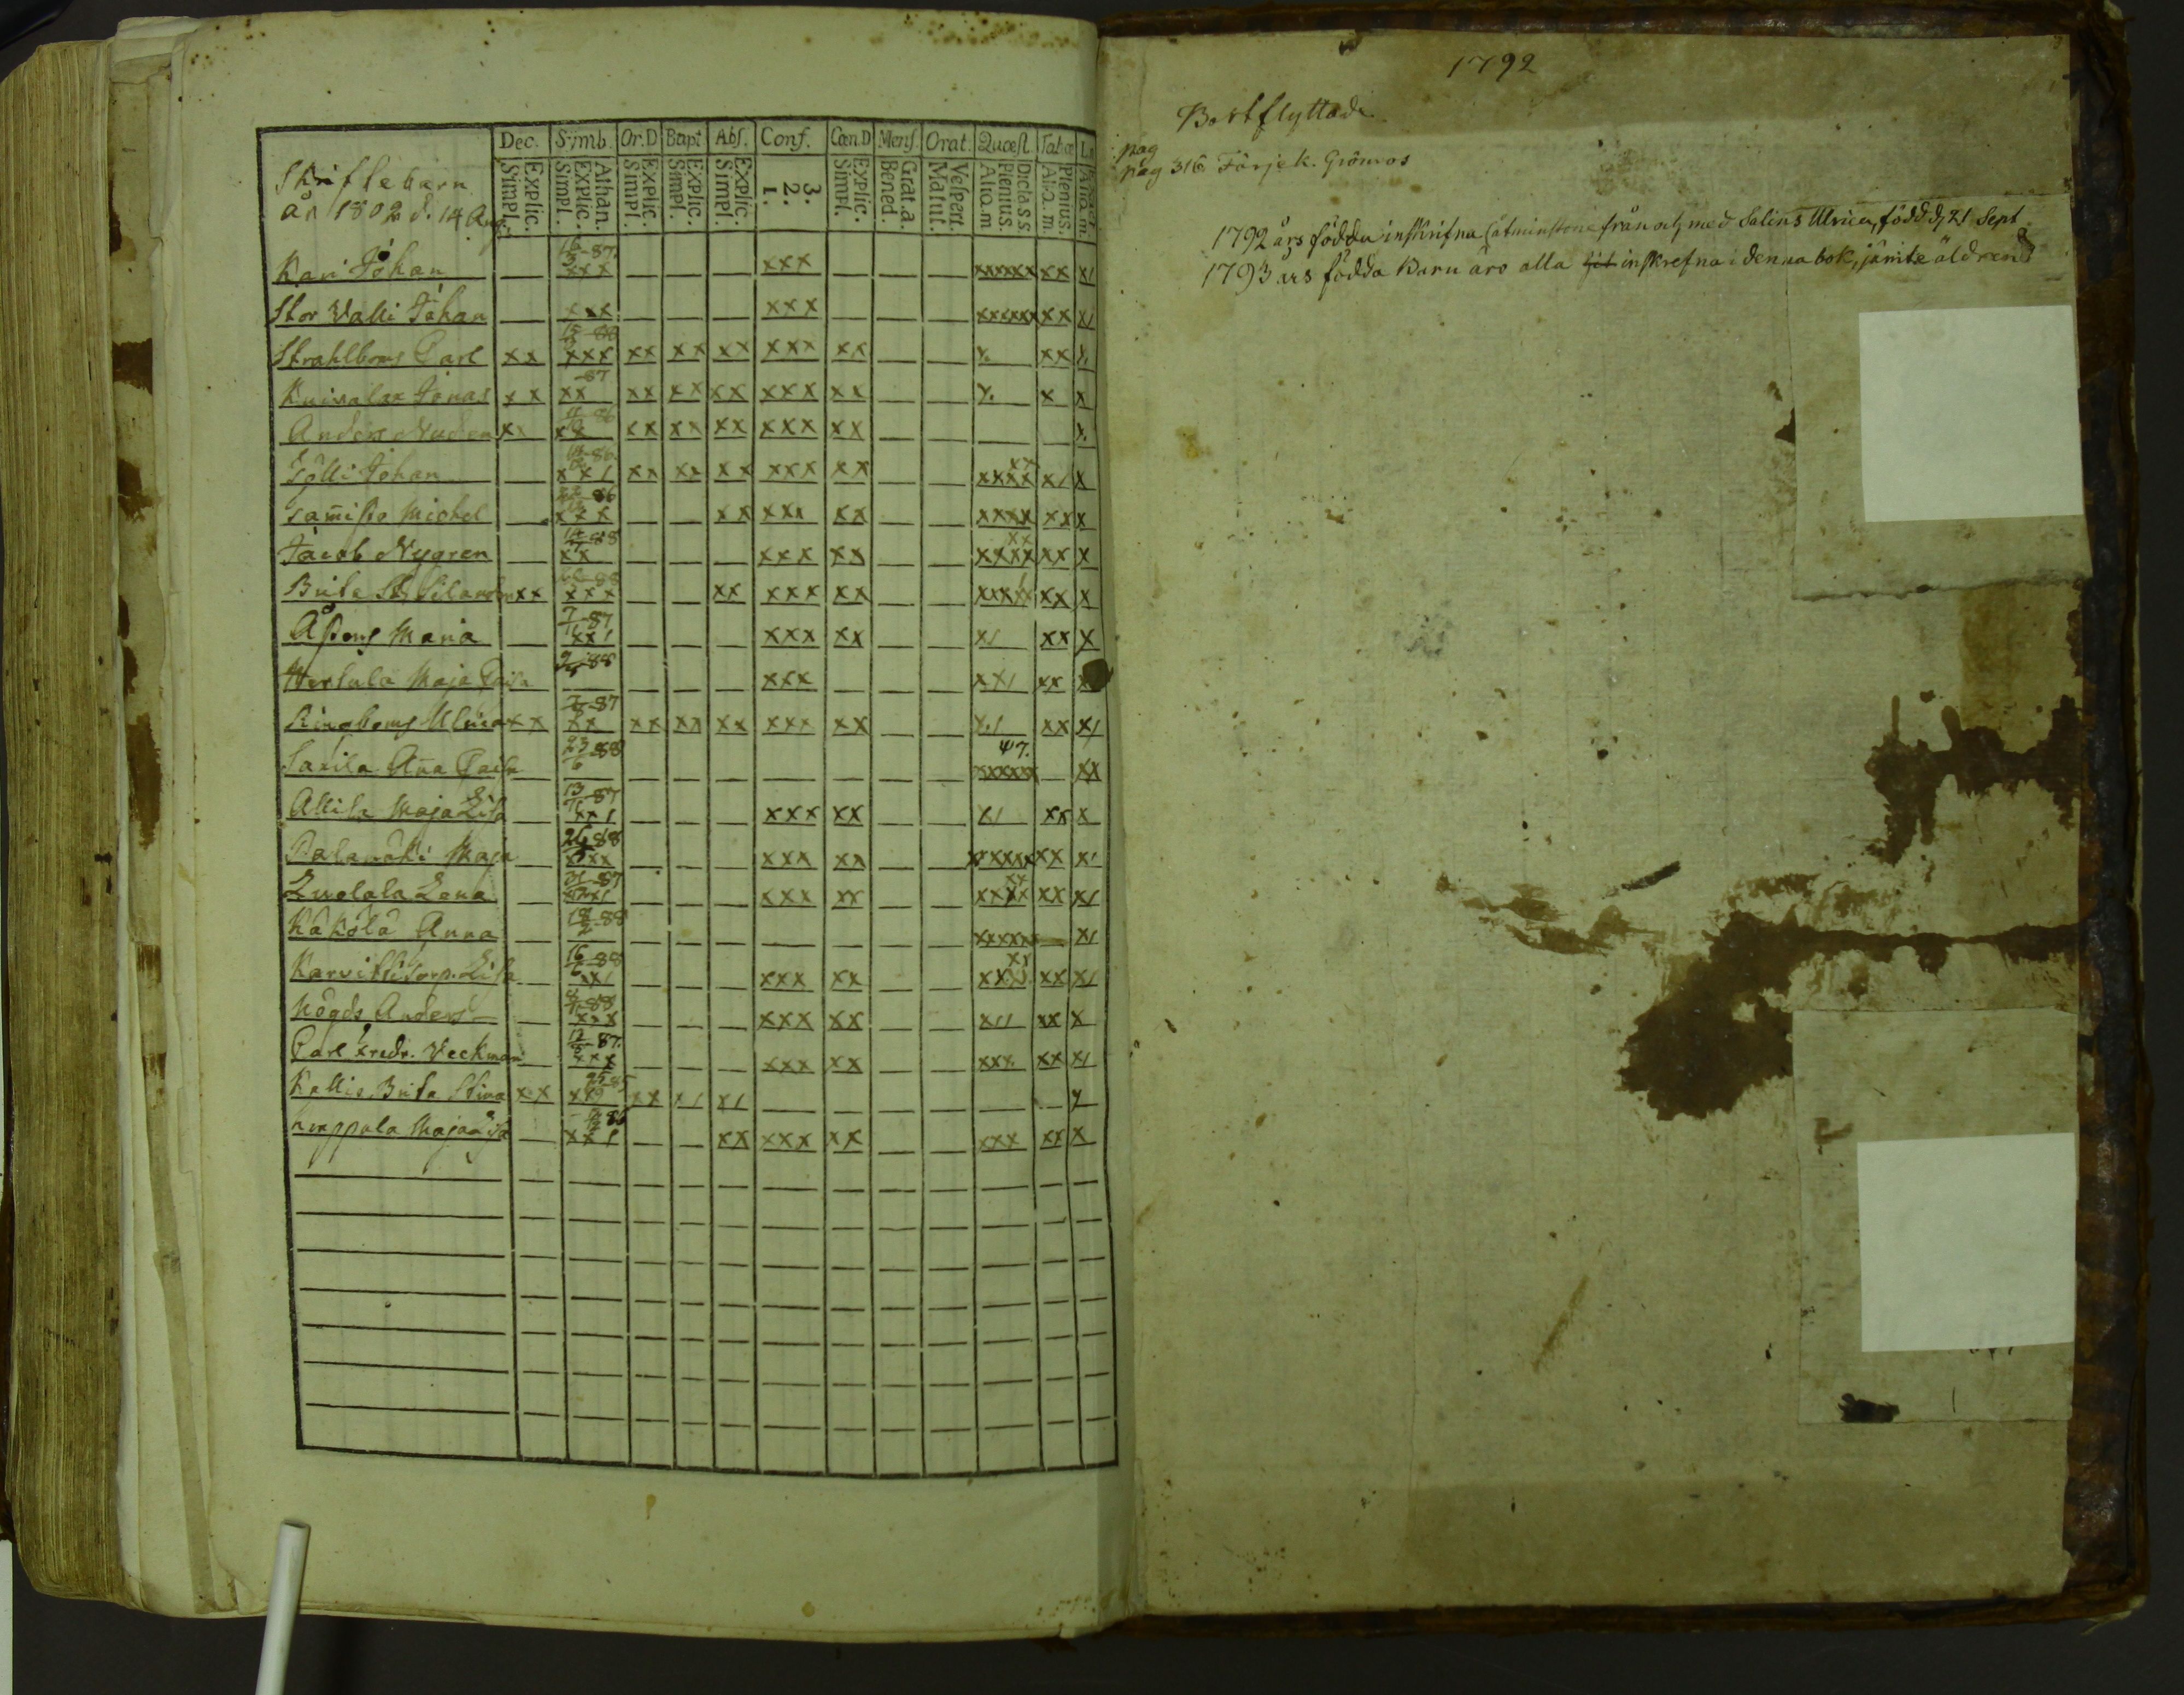 Dec. Symb. Or.D Bapt Abs. Conf. Cœn.D Mens. Orat. Quæst. Tab.œ
Simpl. Explic. Simpl. Explic. Athan. Simpl. Explic. Simpl. Explic. Simpl. Explic. 1. 2. 3. Simpl. Explic. Bened. Grat.a. Matut. Vespert. Aliq.m Plenius. Dict.a ss. Aliq.m Plenius. Aliq.m
Skriftebarn
år 1802 d. 14 Aug.
Kari Johan — 16/3 -87. xxx — — — xxx — — — xxxxxx xx x/
Stor Valli Johan — xxx — — — xxx — — — xxxxxx xx x/
Strahlboms Carl xx 15 -88 xxx xx xx xx xxx xx — — x. xx x.
Jonas xx -87 xx xx xx xx xxx xx — — x. x x
Anders Nuder xx -86 xx xx xx xx xxx xx — — x.
Johan — -86. xx/ xx xx xx xxx xx — — xx xxxx x/ x
Samisto Michel — -86 xxx — — xx xxx xx — — xxxx xx x
Jacob Nygren — -88 xx — — — xxx xx — — xx xxxx xx x
Brita xx -88 xxx — — xx xxx xx — — xxxxx xx x
Maria — 7 -87 xx/ — — — xxx xx — — x/ xx x
Hertula Maja Caisa — 9 -88 — — — — xxx — — — xx/ xx x
Ringboms Ulrica xx 7 -87 xx xx xx xx xxx xx — — x./ xx x/
Saxila Aña Caisa — 23/6 -88 — — — — — — — — 47. xxxxxx — xx
Allila Maja Lisa — 13/11 -87 xx/ — — — xxx xx — — x/ xx x
Palamäki Maja — 26/5 -88 xxx — — — xxx xx — — xxxxxx xx x/
Lena — 31 -87 xx/ — — — xxx xx — — xx xxxx xx x/
Käkölä Anna — 18/2 -88 — — — — — — — — xxxxxx — x/
Karvitsi torp. Lisa — 16/6 -88 xx/ — — — xxx xx — — xx xxxx xx x/
Högds Anders — -88 xxx — — — xxx xx — — x// xx x
Carl Fredr. Veckman — 12 -87. xxx — — — xxx xx — — xxx. xx x/
Kallis Brita Stina xx 25 -85 xx xx x/ x/ — — — — — — x
Maja Lisa — -86 xx/ — — xx xxx xx — — xxx xx x
1792
Bortflyttade
pag
pag 316 Färjek. Grönros
1792 års födda inskrifna (åtminstone från och med Salins Ulrica, född d. 21 Sept
1793 års födda Barn äro alla inskrefna i denna bok, jämte äldren